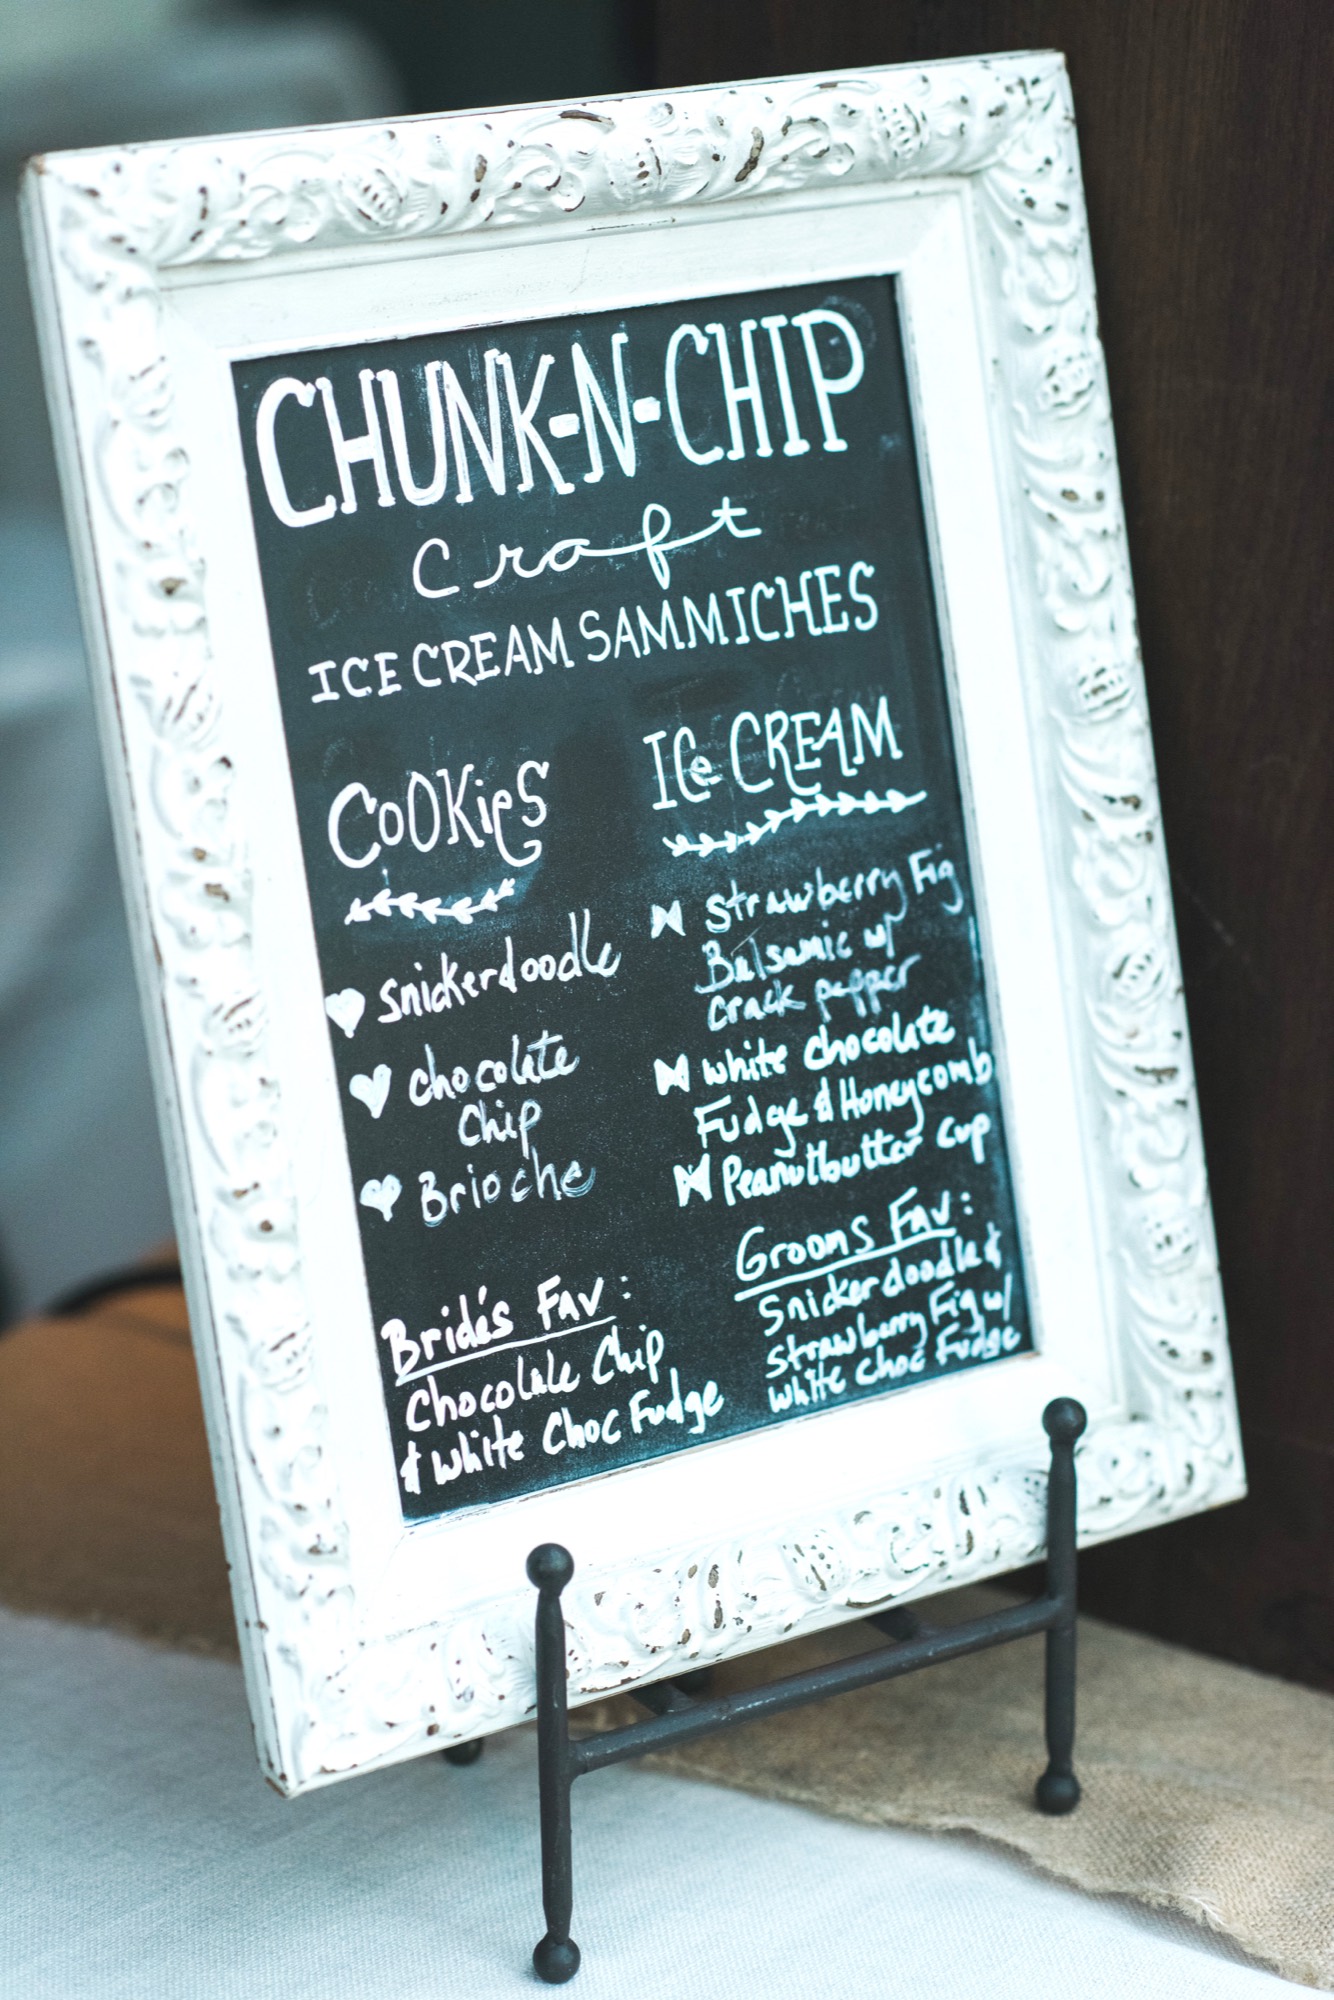 CHUNK-N-CHIP
Craft
ICE CREAM SAMMICHES
COOKies
snickerdoodle
chocolate
Chip
Brioche
ICe CREAM
Strawberry Fig
Balsamic w/
crack pepper
white chocolate
Fudge & Honeycomb
Peanutbutter Cup
Bride's Fav:
Chocolate Chip
& White Choc Fudge
Grooms Fav:
Snickerdoodle &
Strawberry Fig w/
White Choc Fudge